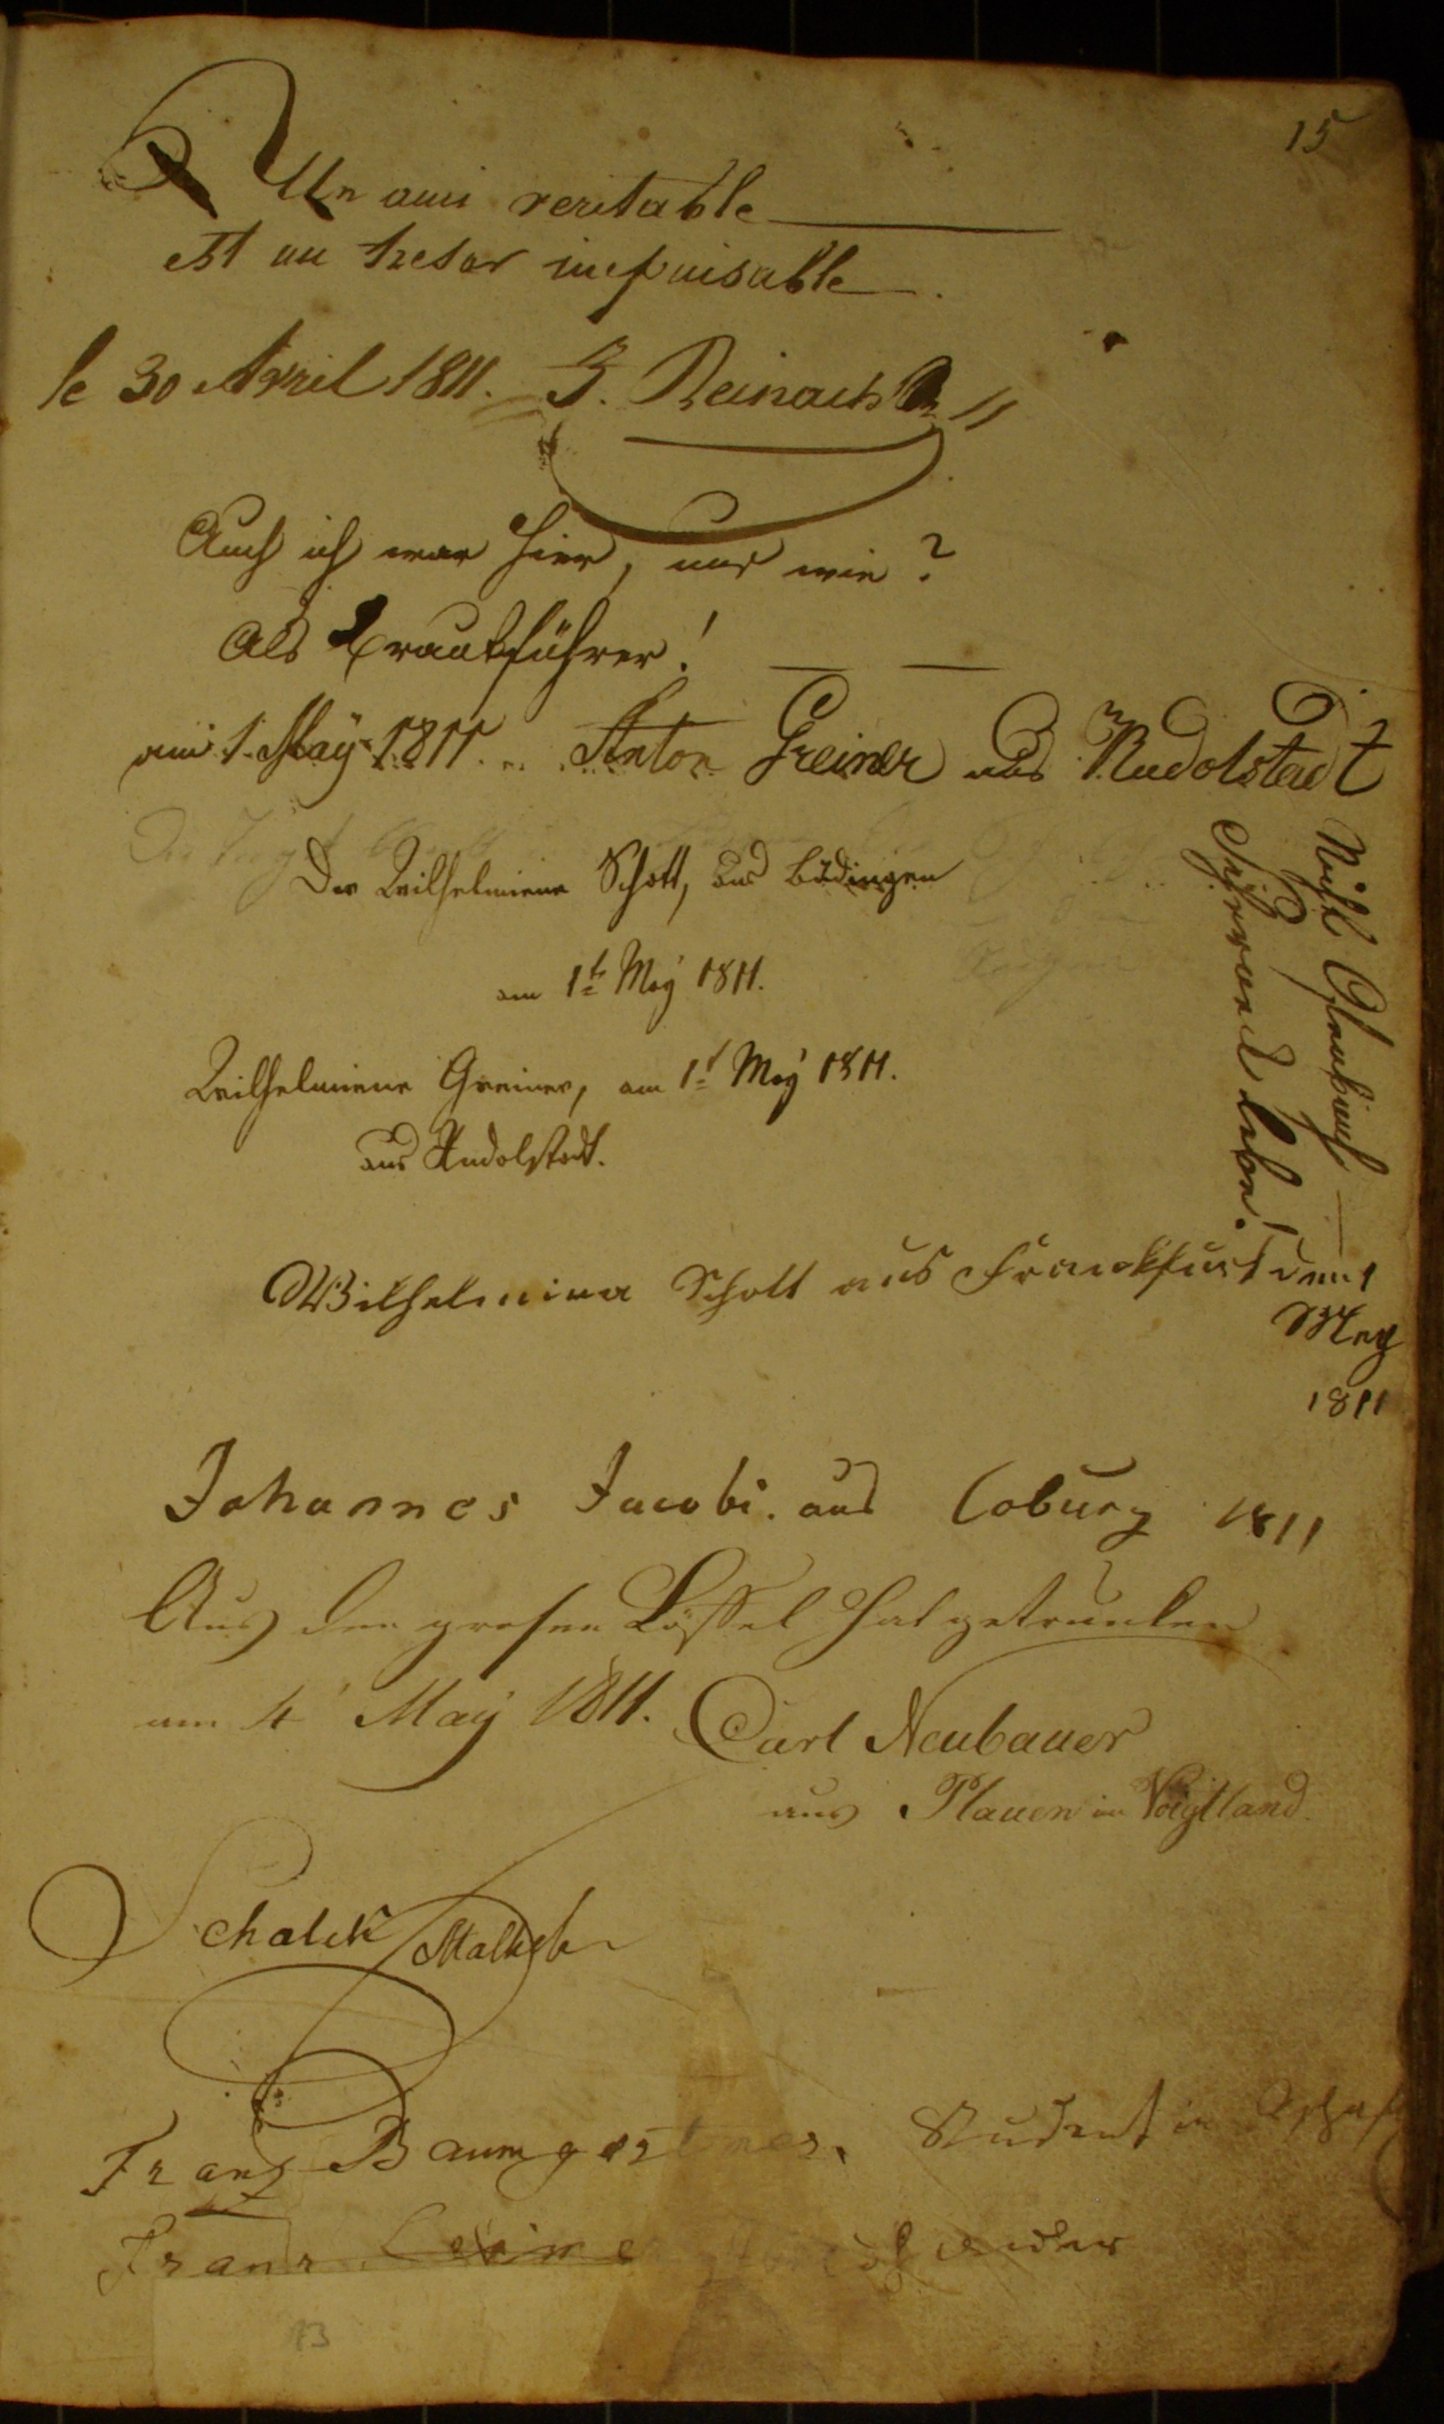 15
Un ami veritable
est un tresor inepuisable.
le 30 Avril 1811. J. Reinach
Auch ich war hier, und wie?
Als Brautführer!
am 1. May 1811. Anton Greiner aus Rudolstadt
Der Wilhelmiene Schott, aus Büdingen
am 1t May 1811.
Wilhelmiene Greiner, am 1t May 1811.
aus Rudolstadt.
Wilhelmina Schott aus Franckfurt den 1
May
1811
Johannes Jacobi. aus Coburg 1811
Aus den grosen Löffel hat getruncken
am 4 May 1811. Carl Neubauer
aus Plauen im Voigtland.
Schalck
Franz Baumgertner. Student in
Franz
13